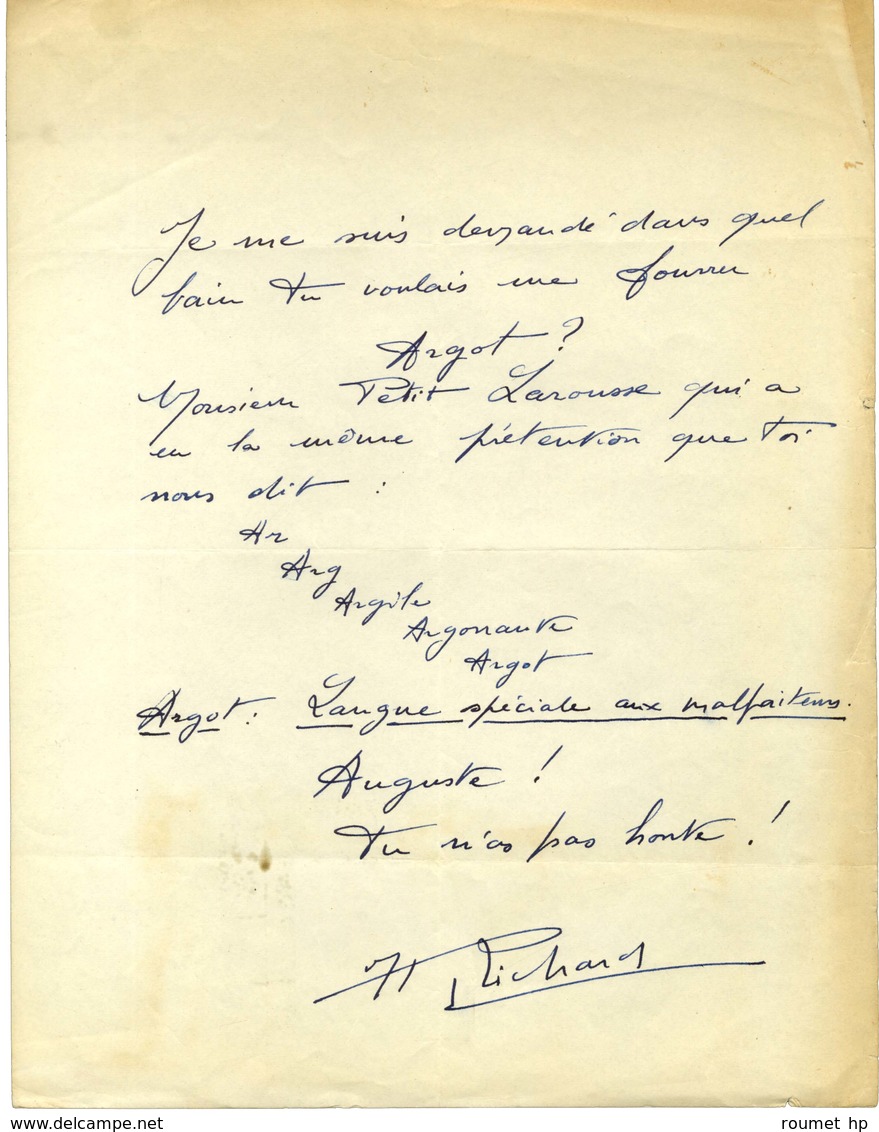 Je me suis demandé dans quel
bain tu voulais me fourrer
Argot ?
Monsieur Petit Larousse qui a
eu la même prétention que toi
nous dit :
Ar
Arg
Argile
Argonaute
Argot
Argot : Langue spéciale aux malfaiteurs.
Auguste !
Tu n'as pas honte !
Richard
www.delcampe.net
roumet hp